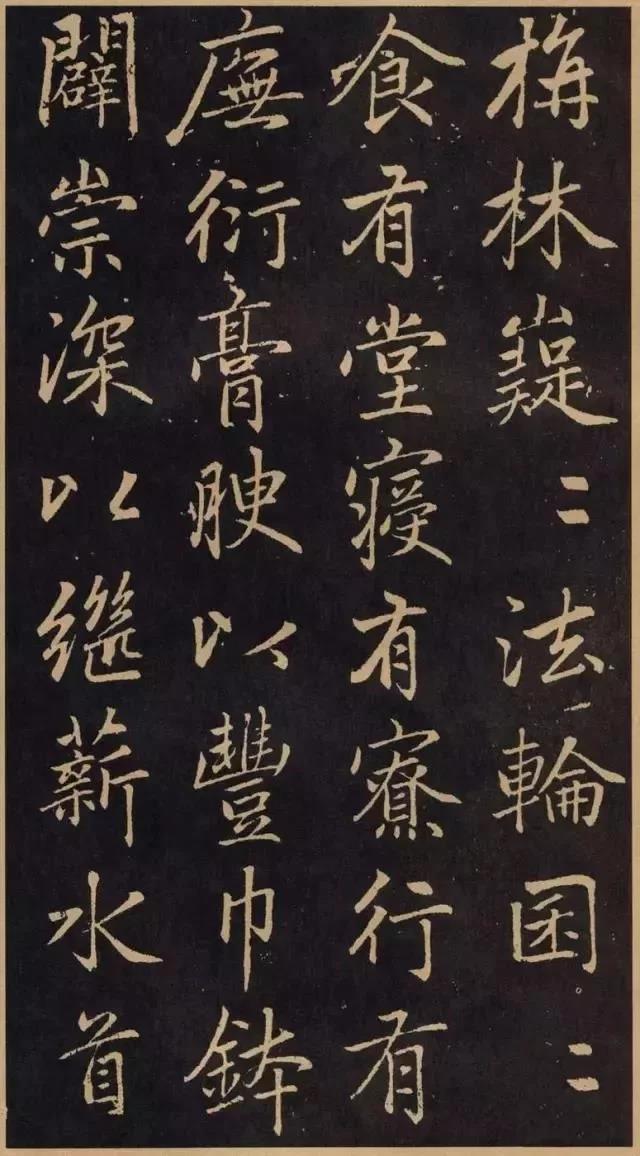 栴林嶷〻法輪囷〻
飡有堂寢有寮行有
廡衍膏腴以豐巾鉢
闢崇深以繼薪水首